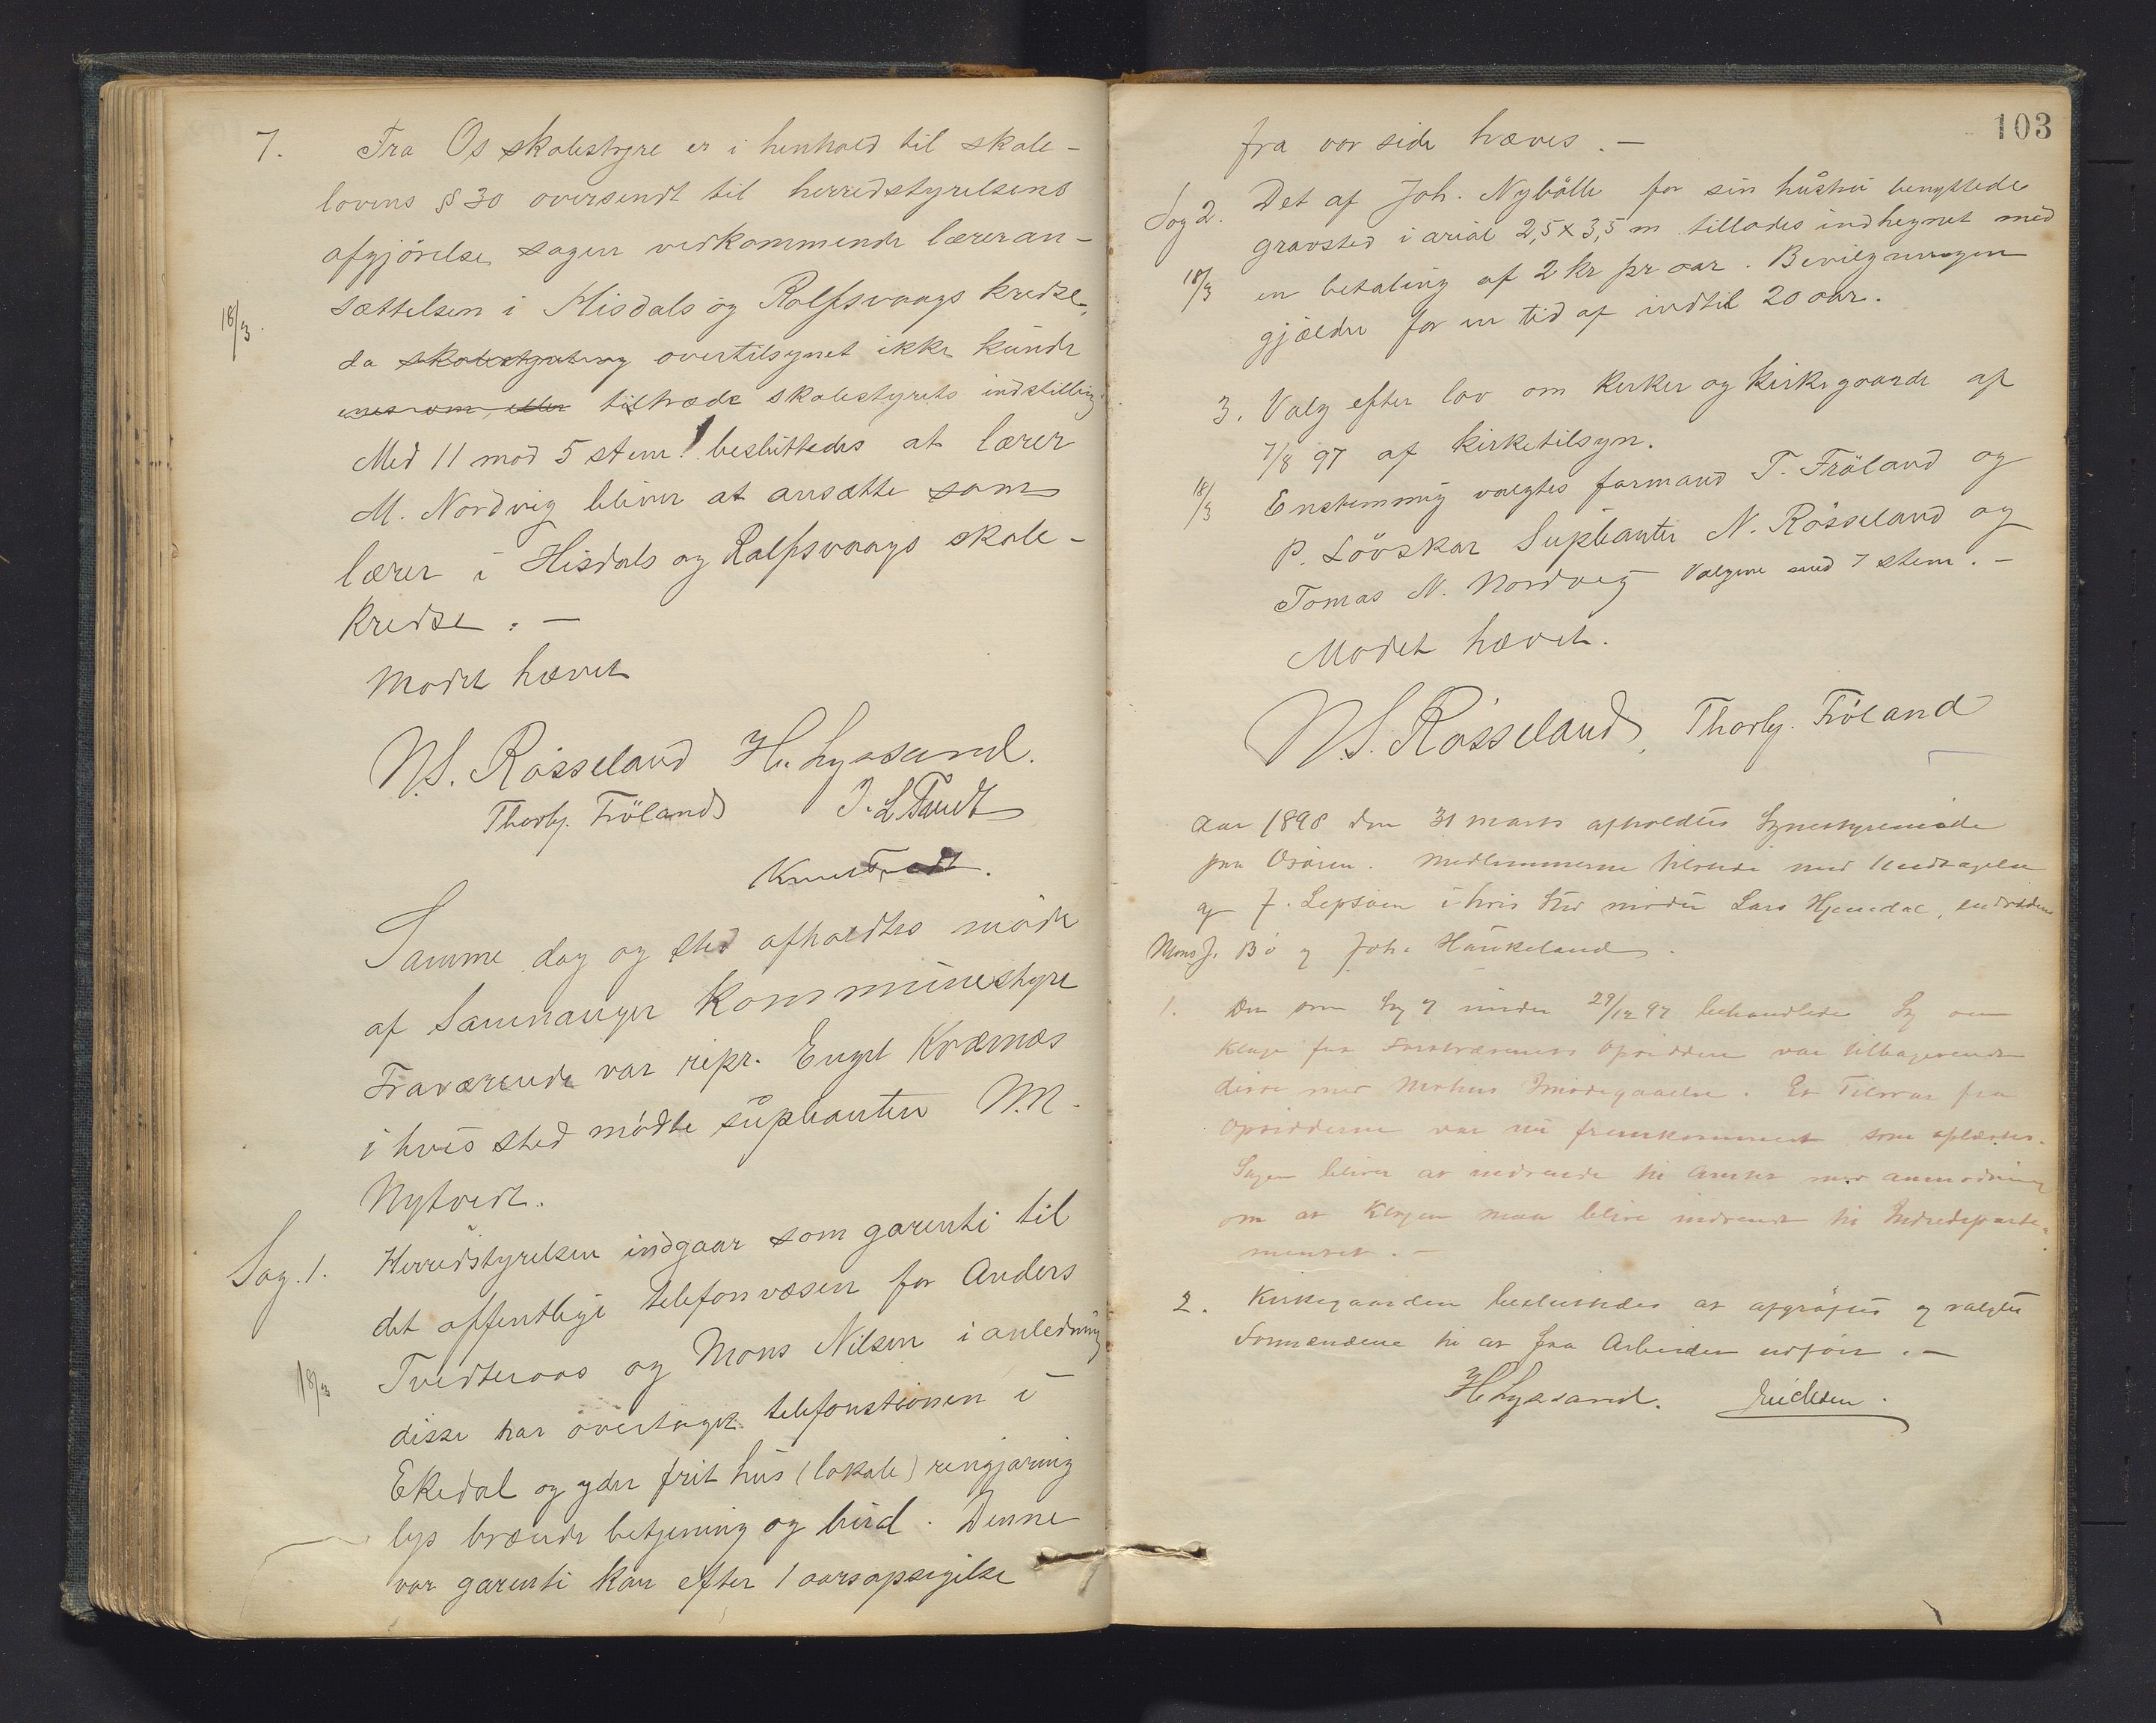 7. Fra Os skolestyre er i henhold til skole-
lovens § 30 oversendt til herredstyrelsens
afgjörelse sagen vedkommende læreran-
sættelsen i Hisdals og Rolfsvaags kredse,
18/3.
da skolestyret og overtilsynet ikke kunde
enes om eller tiltræde skolestyrets indstilling
Med 11 mod 5 stem. besluttedes at lærer
M. Nordvig bliver at ansætte som
lærer i Hisdals og Rolfsvaags skole-
kredse. —
Mödet hævet
N.S. Rösseland H. Lyssand.
Thorbj. Fröland J. L. Tveit
Samme dag og sted afholdtes möde
af Samnanger Kommunestyre
Fraværende var repr. Engel Kværnæs
i hvis sted mödte suplianten N.M.
Nytvedt.
Sag. 1. Herredstyrelsen indgaar som garenti til
det offentlige telefonvæsen for Anders
Tvedteraas og Mons Nilsen i anledning
18/3
disse har overtaget telefonstionen i
Ekedal og yder frit hus (lokale) rengjöring
lys brænde betjening og bud. Denne
vor garenti kan efter 1 aarsopsigelse
103
fra vor side hæves. —
Sag 2. Det af Joh. Nybölle for sin hustru benyttede
gravsted i arial 2,5 x 3,5 m tillades indhegnet med
18/3 en betaling af 2 kr pr aar. Bevilgningen
gjælder for en tid af indtil 20 aar.
3. Valg efter lov om kirker og kirkegaarde af
7/8 97 af kirketilsyn.
18/3 Enstemmig valgtes formand T. Fröland og
P. Lövskar Suplianter N. Rösseland og
Tomas N. Nordvig Valgene med 7 stem. —
Mödet hævet.
N.S. Rösseland, Thorbj. Fröland
Aar 1898 den 31 marts afholdtes
paa Osören. Medlemmerne tilstede med Undtagelse
af J. Lepsöen i hvis Sted mödte Lars Hjemdal, endvidere
Mons J. Bö og Joh. Haukeland.
1. Den som Sag 7 under 29/12 97 behandlede Sag om
Klage fra Forstvæsenets Opsiddere var tilbagesendt
disse med Imödegaaelse. Et Tilsvar fra
Opsidderne var nu fremkommet som oplæstes.
Sagen bliver at indsende til Amtet med anmodning
om at Klagen maa blive indsendt til Indredeparte-
mentet. —
2. Kirkegaarden besluttedes at afgröftes og valgtes
Formændene til at faa Arbeidet udfört. —
H. Lyssand.